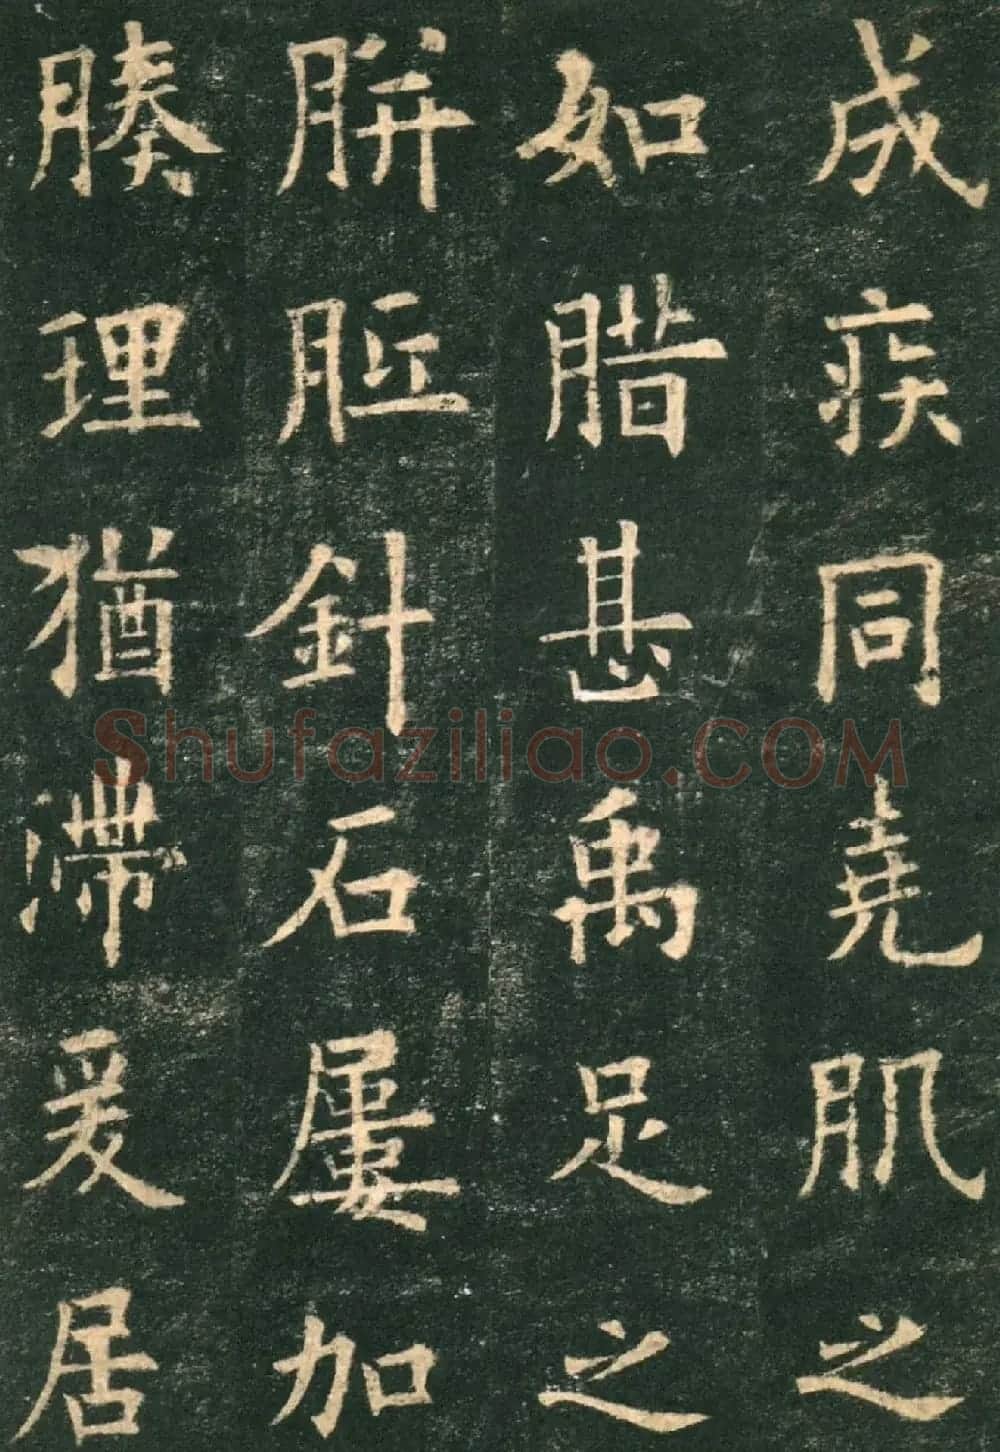 成疾同堯肌之
如腊甚禹足之
胼胝針石屢加
腠理猶滯爰居
Shufaziliao.COM